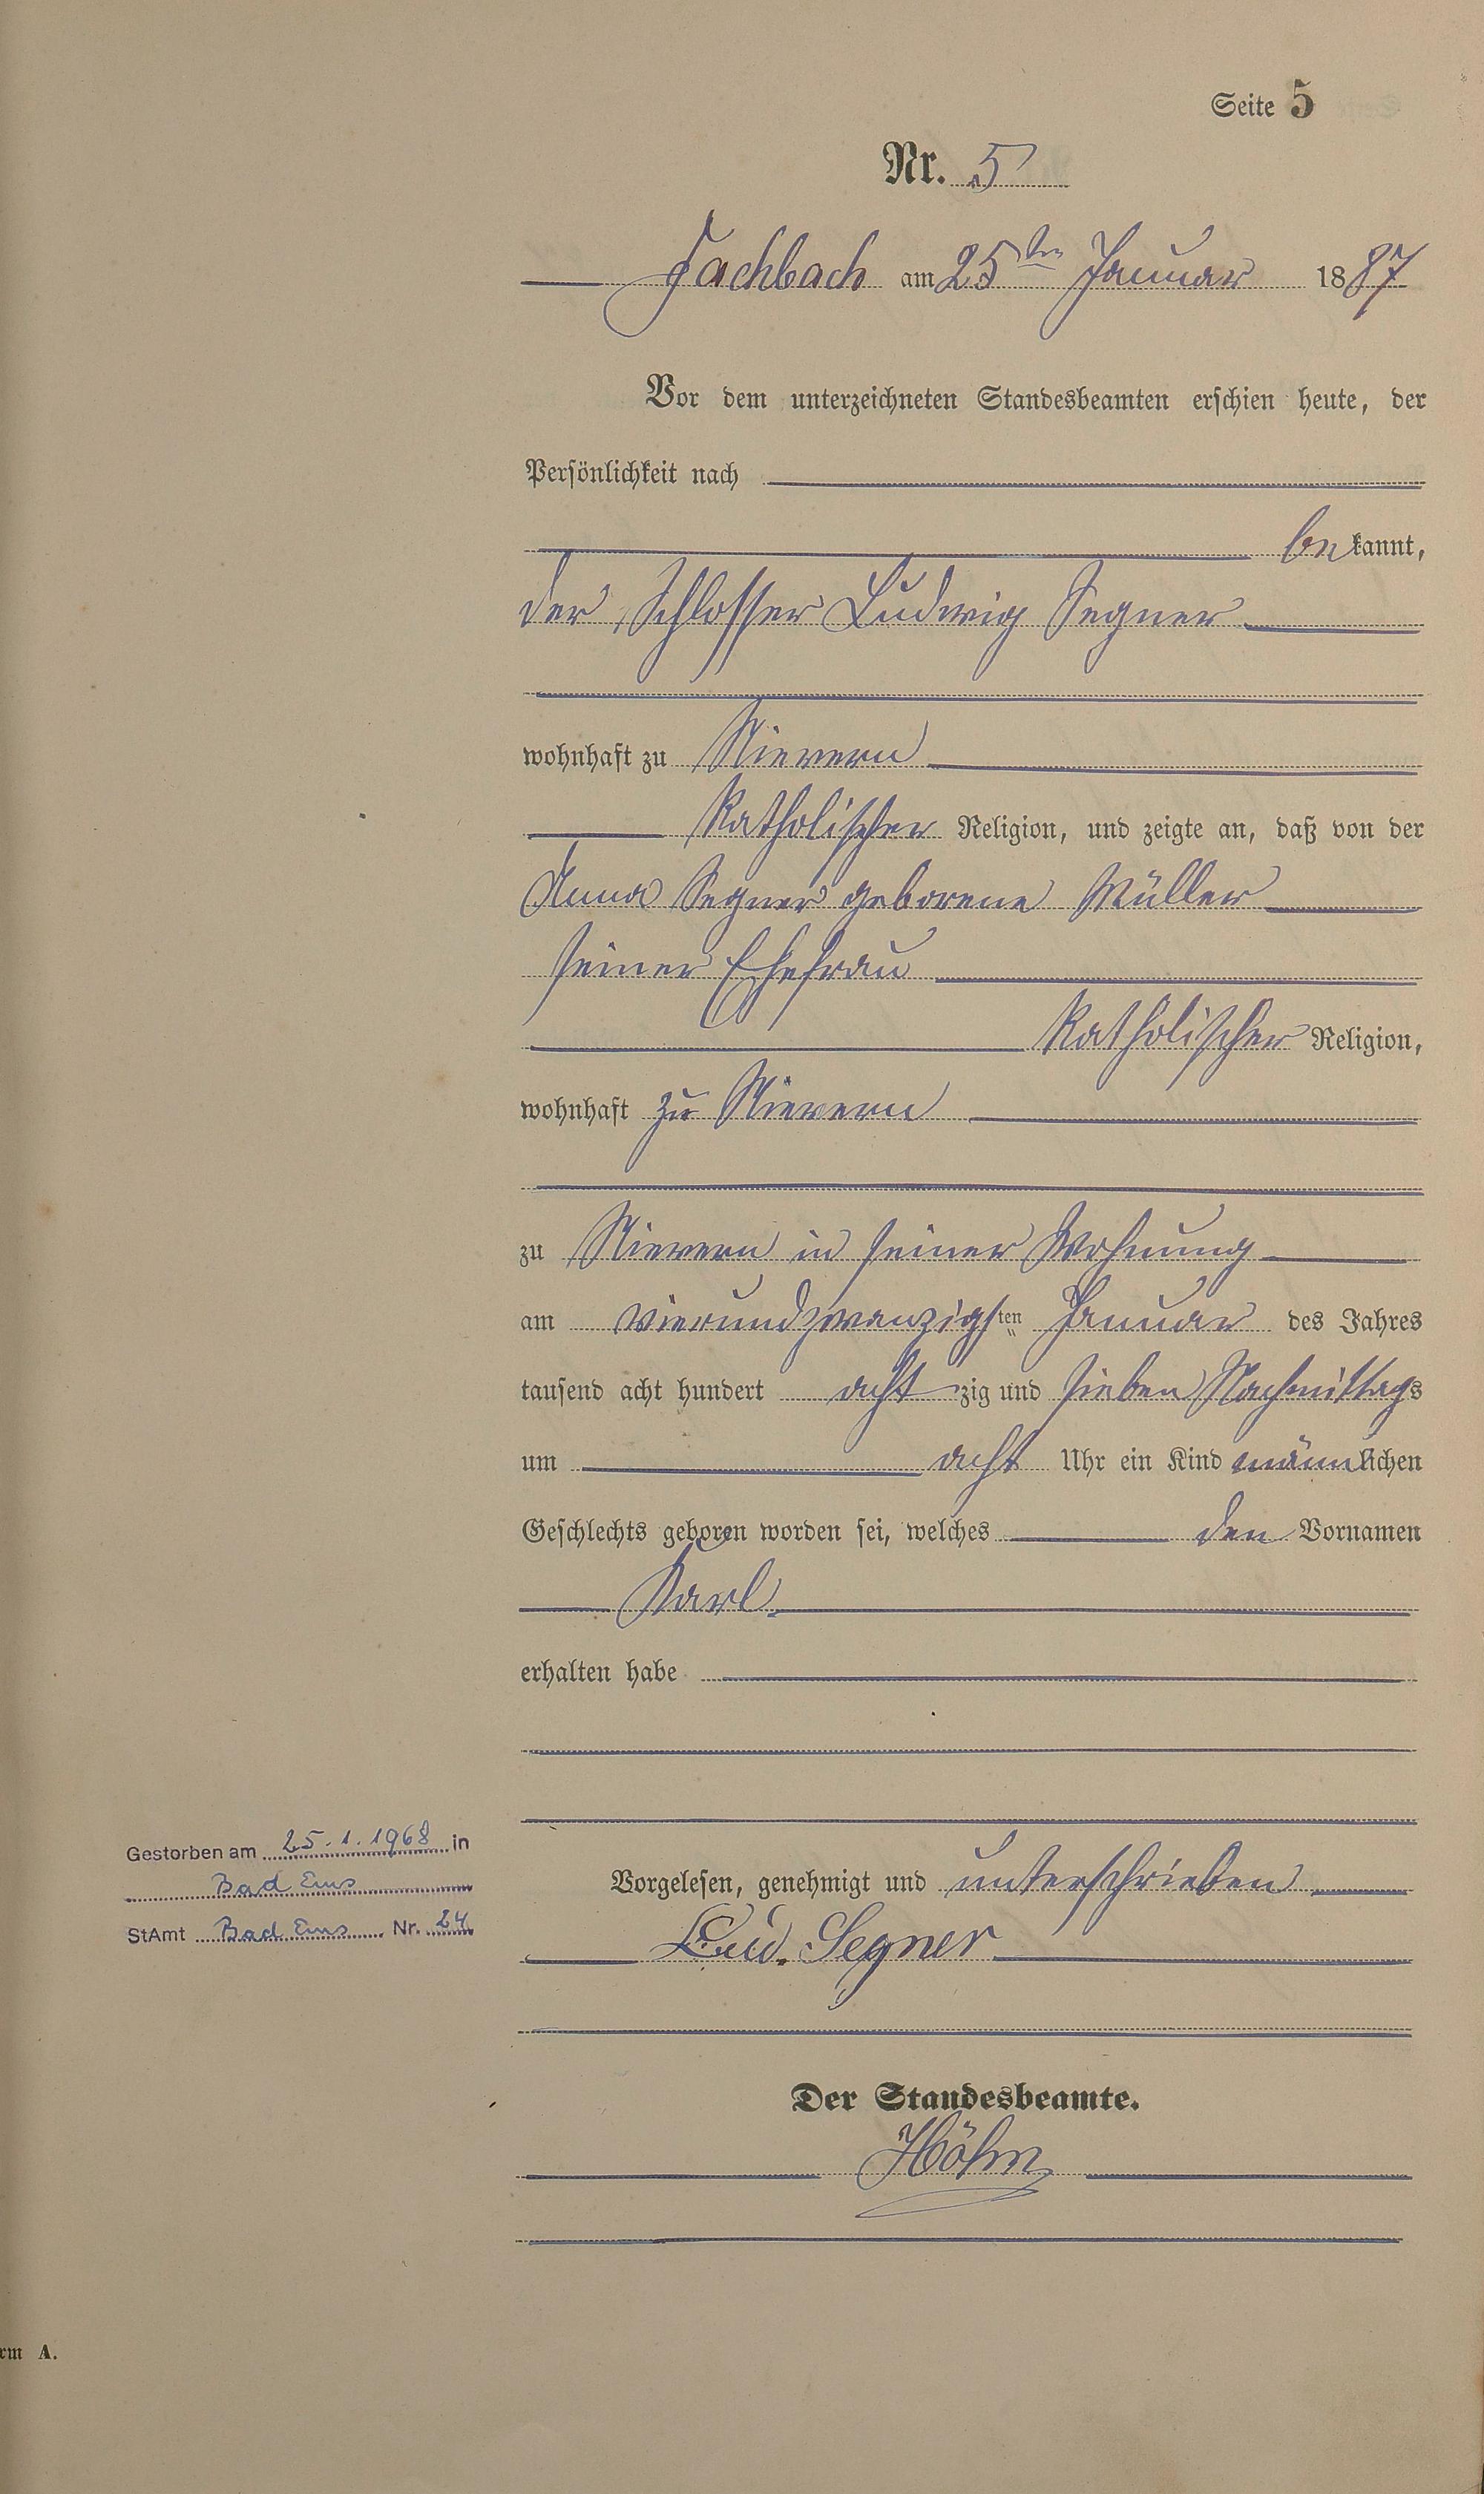 Seite 5
Nr. 5
Fachbach am 25ten Januar 1887
Vor dem unterzeichneten Standesbeamten erschien heute, der
Persönlichkeit nach
bekannt,
der Schlosser Ludwig Segner
wohnhaft zu Nievern
katholischer Religion, und zeigte an, daß von der
Anna Segner geborene Müller
seiner Ehefrau
katholischer Religion,
wohnhaft zu Nievern
zu Nievern in seiner Wohnung
am vierundzwanzigsten Januar des Jahres
tausend acht hundert achtzig und sieben Nachmittags
um acht Uhr ein Kind männlichen
Geschlechts geboren worden sei, welches den Vornamen
Karl
erhalten habe
Vorgelesen, genehmigt und unterschrieben
Lud. Segner
Der Standesbeamte.
Höhn
Gestorben am 25.1.1968 in
Bad Ems
StAmt Bad Ems Nr. 24
rm A.